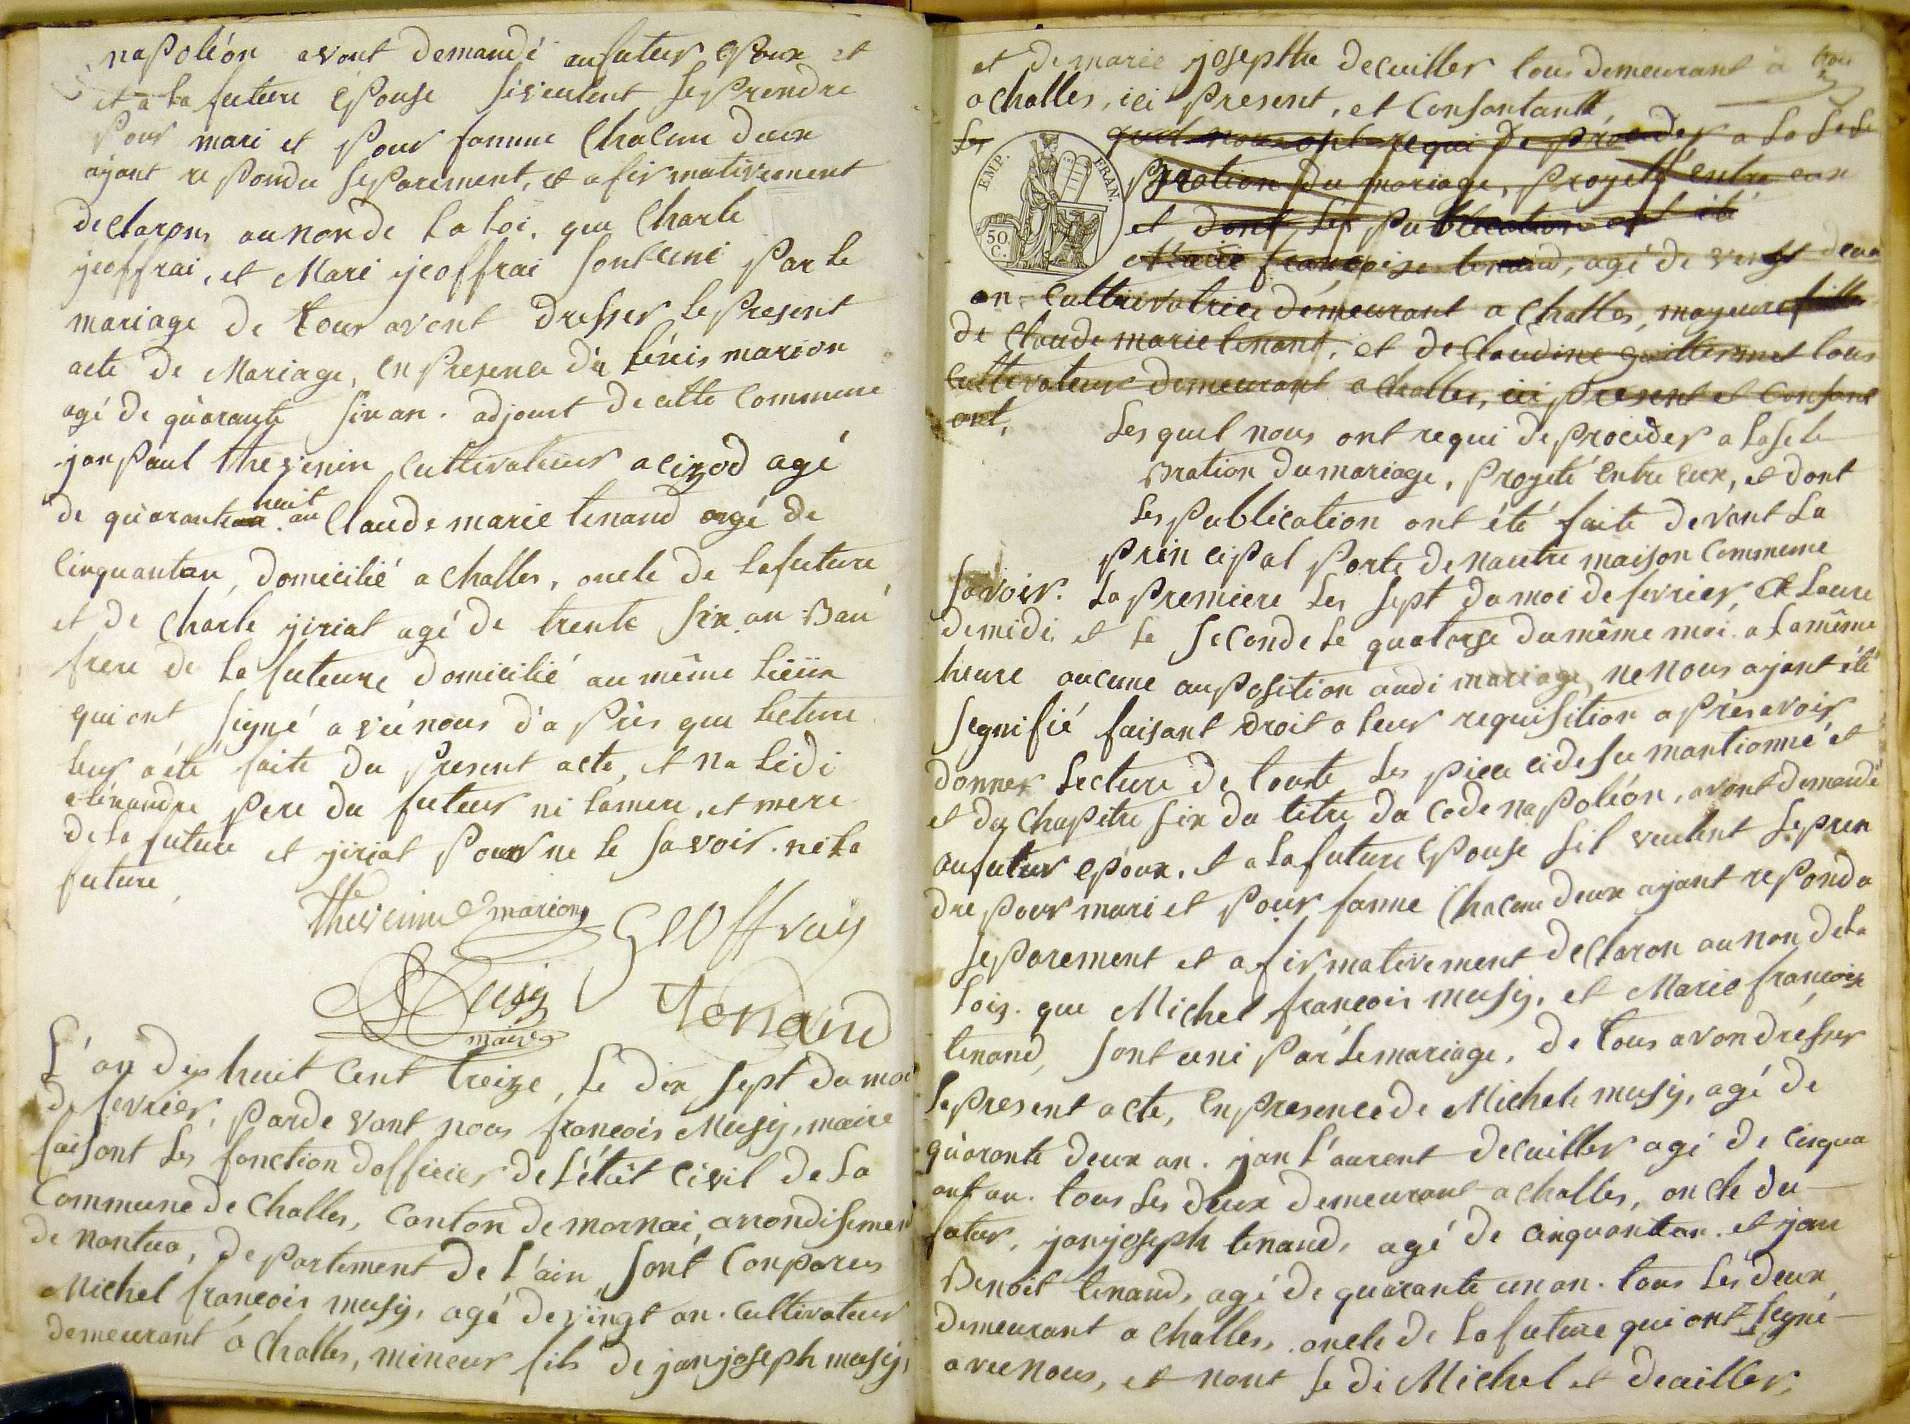 napoléon avont demandé aufutur epoux et
et a la future épouse siveulent se prendre
pour mari et pour famme chacun deux
ayant repondu separement, et afirmativement
declarons aunonde la loi, que Charle
jeoffrai, et Mari jeoffrai sont uni par le
mariage de tous avont dresser le present
acte de Mariage, en presence da lénis marion
agé de quarante six an. adjoint de cette commune
jan paul thevenin cultivateur a cizod agé
de quarante huit an Claude marie tenand agé de
cinquantan, domicilié a challes, oncle de la future,
et de Charle jiriat agé de trente six an Bau
frere de la future domicilié au même lieux
qui ont signé avec nous d'a près que lecture
leur a été faite du present acte, et na ledi
pere du futeur ni la mere, et mere
de la future et jiriat pour ne le savoir. ni la
future,
thevenin marion Geoffray
Musy Tenand
maire
L'an dix huit cent treize, le dix sept du moi
de fevrier, parde vant nous francois Musy, maire
faisont les fonction dofficier de l'état civil de la
Commune de Challes, canton de mornai, arrondisement
de nantua, departement de l'ain sont conparus
Michel francois musy, agé de vingt an. cultivateur
demeurant a challes, mineur fils de jan joseph musy,
et de marie josepthe decuiller tous demeurant a
a challes, ici present, et consantant
Les quel nous ont requi de proceder a la sele
EMP. FRAN.
50. C.
Bration du mariage, projetté entre eux
et dont les publication ont été
Marie françoise tenand, agé de vingt deux
an cultivatrice demeurant a challes, mayeure fille
de claude marie tenant, et de claudine guillermet tous
cultivateur demeurant a challes, ici present et consant
ant,
Lesquel nous ont requi de proceder a la sele
Bration du mariage, projeté entre eux, et dont
les publication ont été faite devant la
principal porte de nautre maison commune
savoir. la premiere les sept du moi de fevrier a leure
demidi et la seconde le quatorse du même moi a la même
heure aucune auposition audi mariage, ne nous ayant été
segnifié faisant droit a leur requisition aprés avoir
donner lecture de toute les piece cidesu mantionné et
et du chapitre six du titre du code napoléon, avont demandé
aufutur epoux, et a la future epouse sil veulent se pren
dre pour mari et pour famme chacun deux ayant repondu
separement et afirmativement declaron au non de la
loiy. que Michel francois musy, et Marie francoise
tenand, sont uni par le mariage, de tous avon dresser
le present acte, en presence de Michele musy, agé de
quarante deux an. jan l'aurent decuiller agé de cinqua
ant an. tous les deux demeurant a challes, oncle du
futur, jan joseph tenand, agé de cinquantan. et jan
Benoit tenand, agé de quarante un an. tous les deux
demeurant a challes, oncle de la future qui ont segné
avec nous, et nont le di Michel et decuiller,